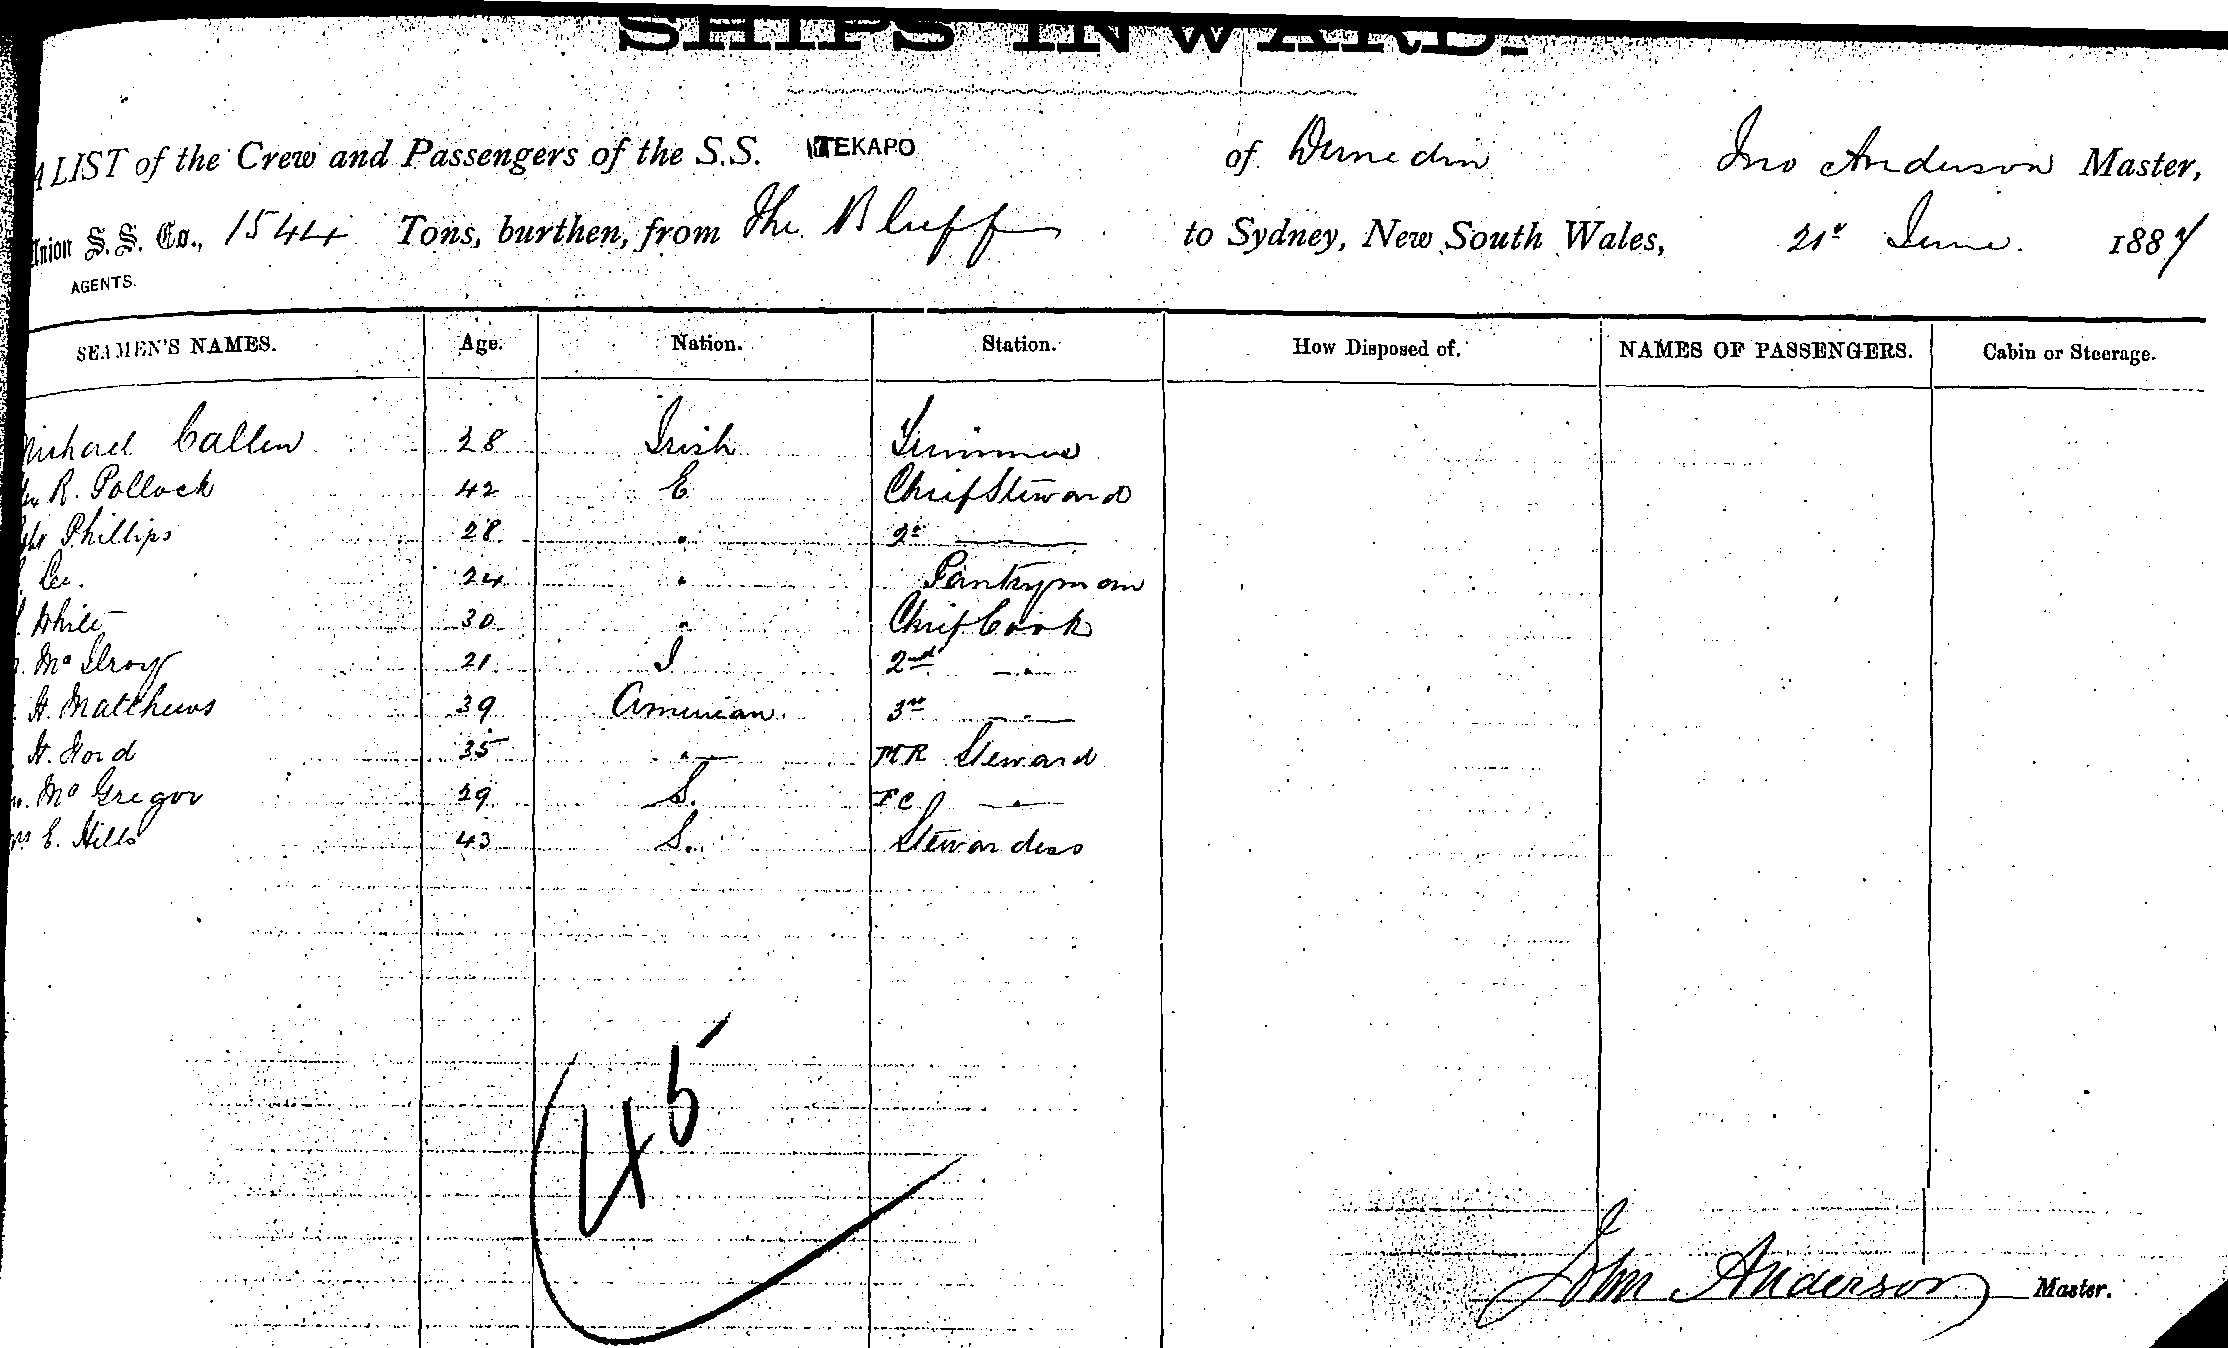 SHIPS INWARD.
A LIST of the Crew and Passengers of the S.S. TEKAPO of Dunedin Jno Anderson Master,
Union S.S. Co., 1544 Tons, burthen, from The Bluff to Sydney, New South Wales, 21st June 1887
AGENTS.
SEAMEN'S NAMES. Age. Nation. Station. How Disposed of. NAMES OF PASSENGERS. Cabin or Steerage.
Michael Callen 28 Irish Trimmer
R. Pollock 42 E Chief Steward
Phillips 28 " 2d
Lee. 24 " Pantryman
White 30 " Chief Cook
McIlroy 21 I 2nd "
H. Matthews 39 American 3rd "
H. Ford 35 " MR Steward
McGregor 29 S. FC "
E. Hills 43 S. Stewardess
45
John Anderson Master.